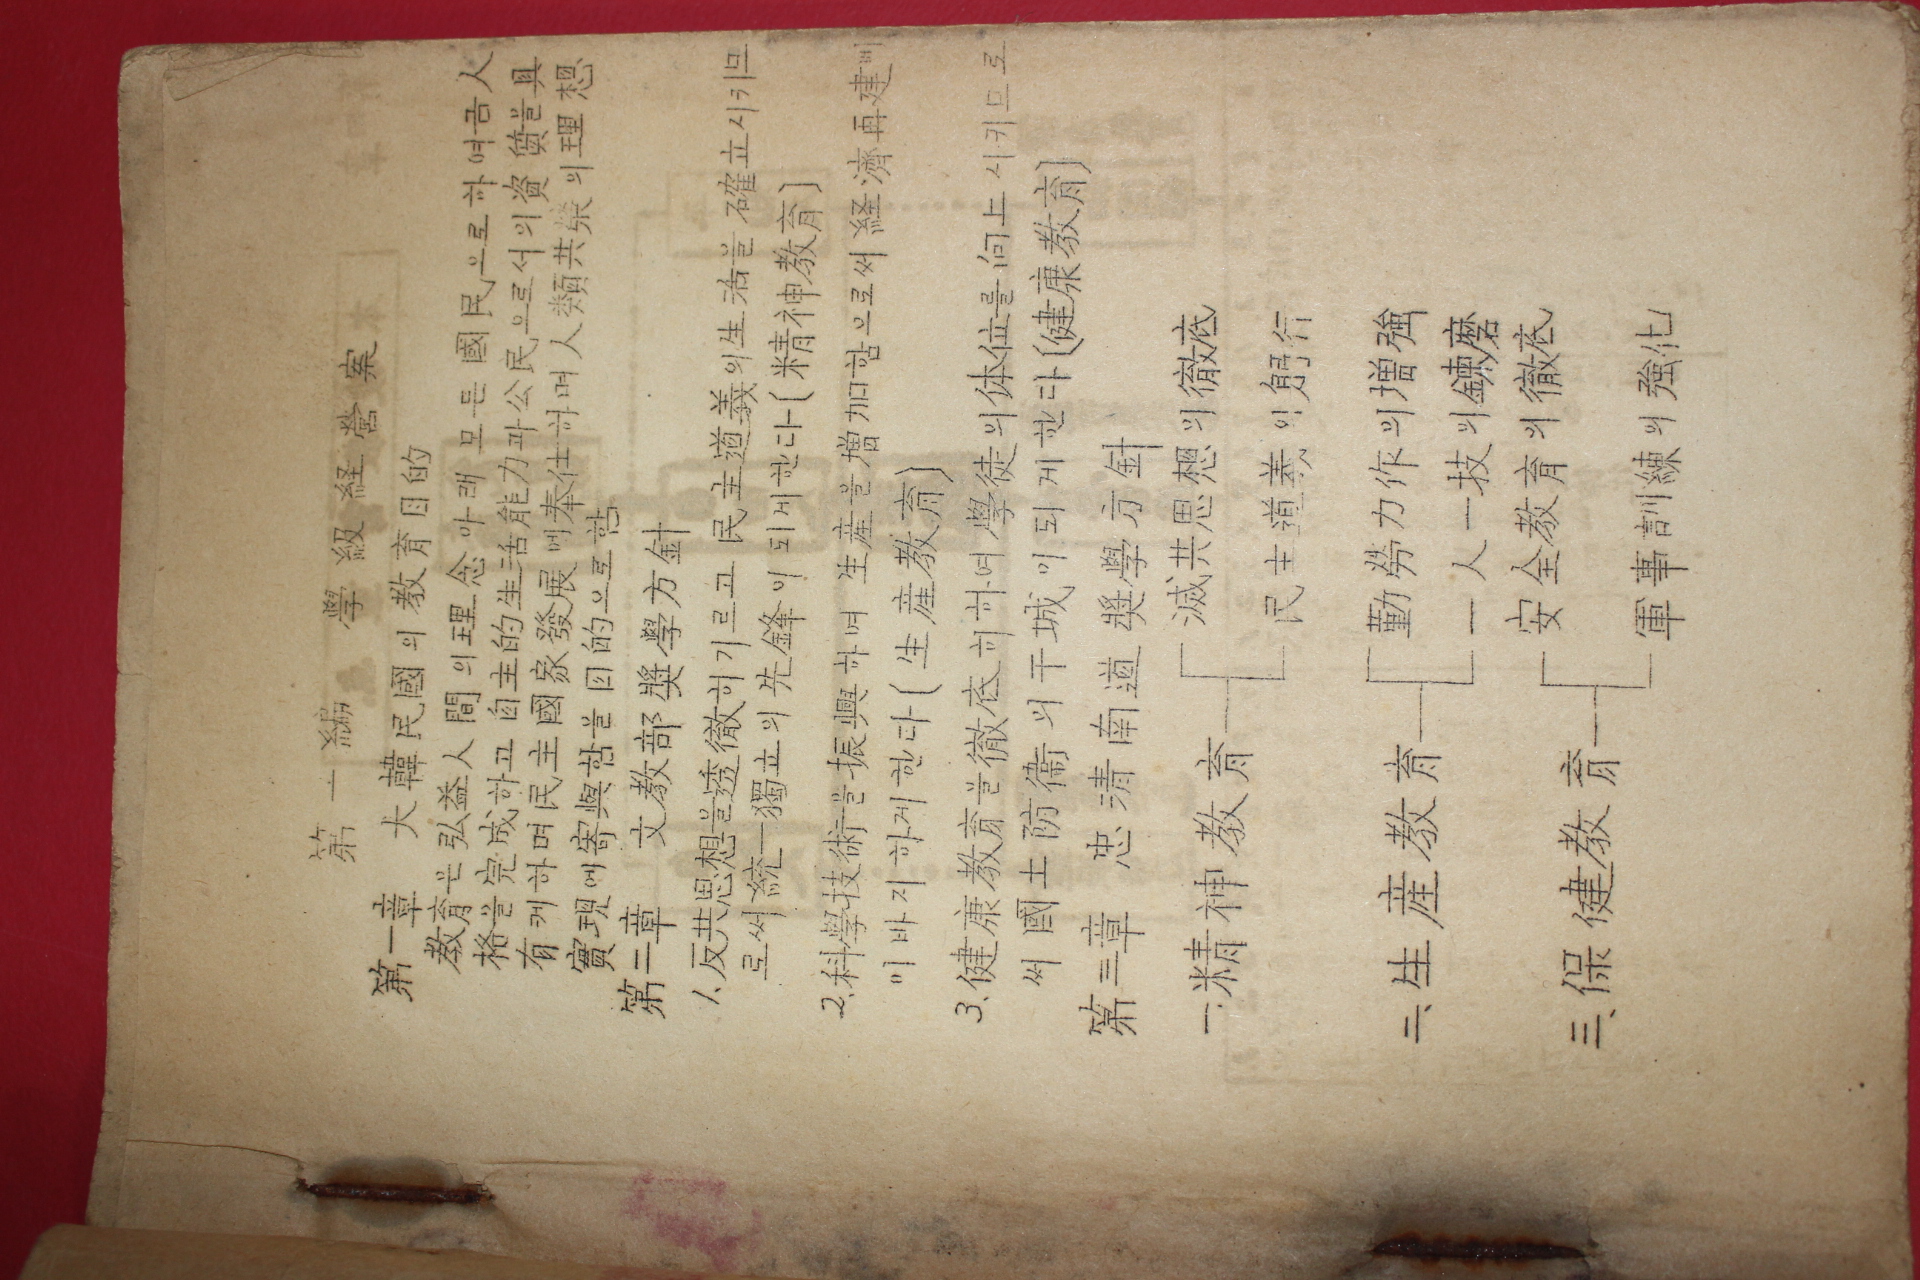 第一編 學級経營案
第一章 大韓民國의 敎育目的
敎育은 弘益人間의 理念아래 모든 國民으로 하여금 人
格을 完成하고 自主的生活能力과 公民으로서의 資質을 具
有케하며 民主國家發展에 奉仕하며 人類共榮의 理想
實現에 寄與함을 目的으로 함
第二章 文敎部 奬學方針
1. 反共思想을 透徹히 기르고 民主道義의 生活을 確立시키므
로써 統一獨立의 先鋒이 되게 한다 (精神敎育)
2. 科學技術을 振興하며 生産을 增加함으로써 経濟再建에
이바지하게 한다 (生産敎育)
3. 健康敎育을 徹底히 하여 學徒의 体位를 向上시키므로
써 國土防衛의 干城이 되게 한다 (健康敎育)
第三章 忠淸南道 奬學方針
一. 精神敎育 滅共思想의 徹底
民主道義의 躬行
二、生産敎育 勤勞力作의 增強
一人一技의 鍊磨
三、保健敎育 安全敎育의 徹底
軍事訓練의 強化